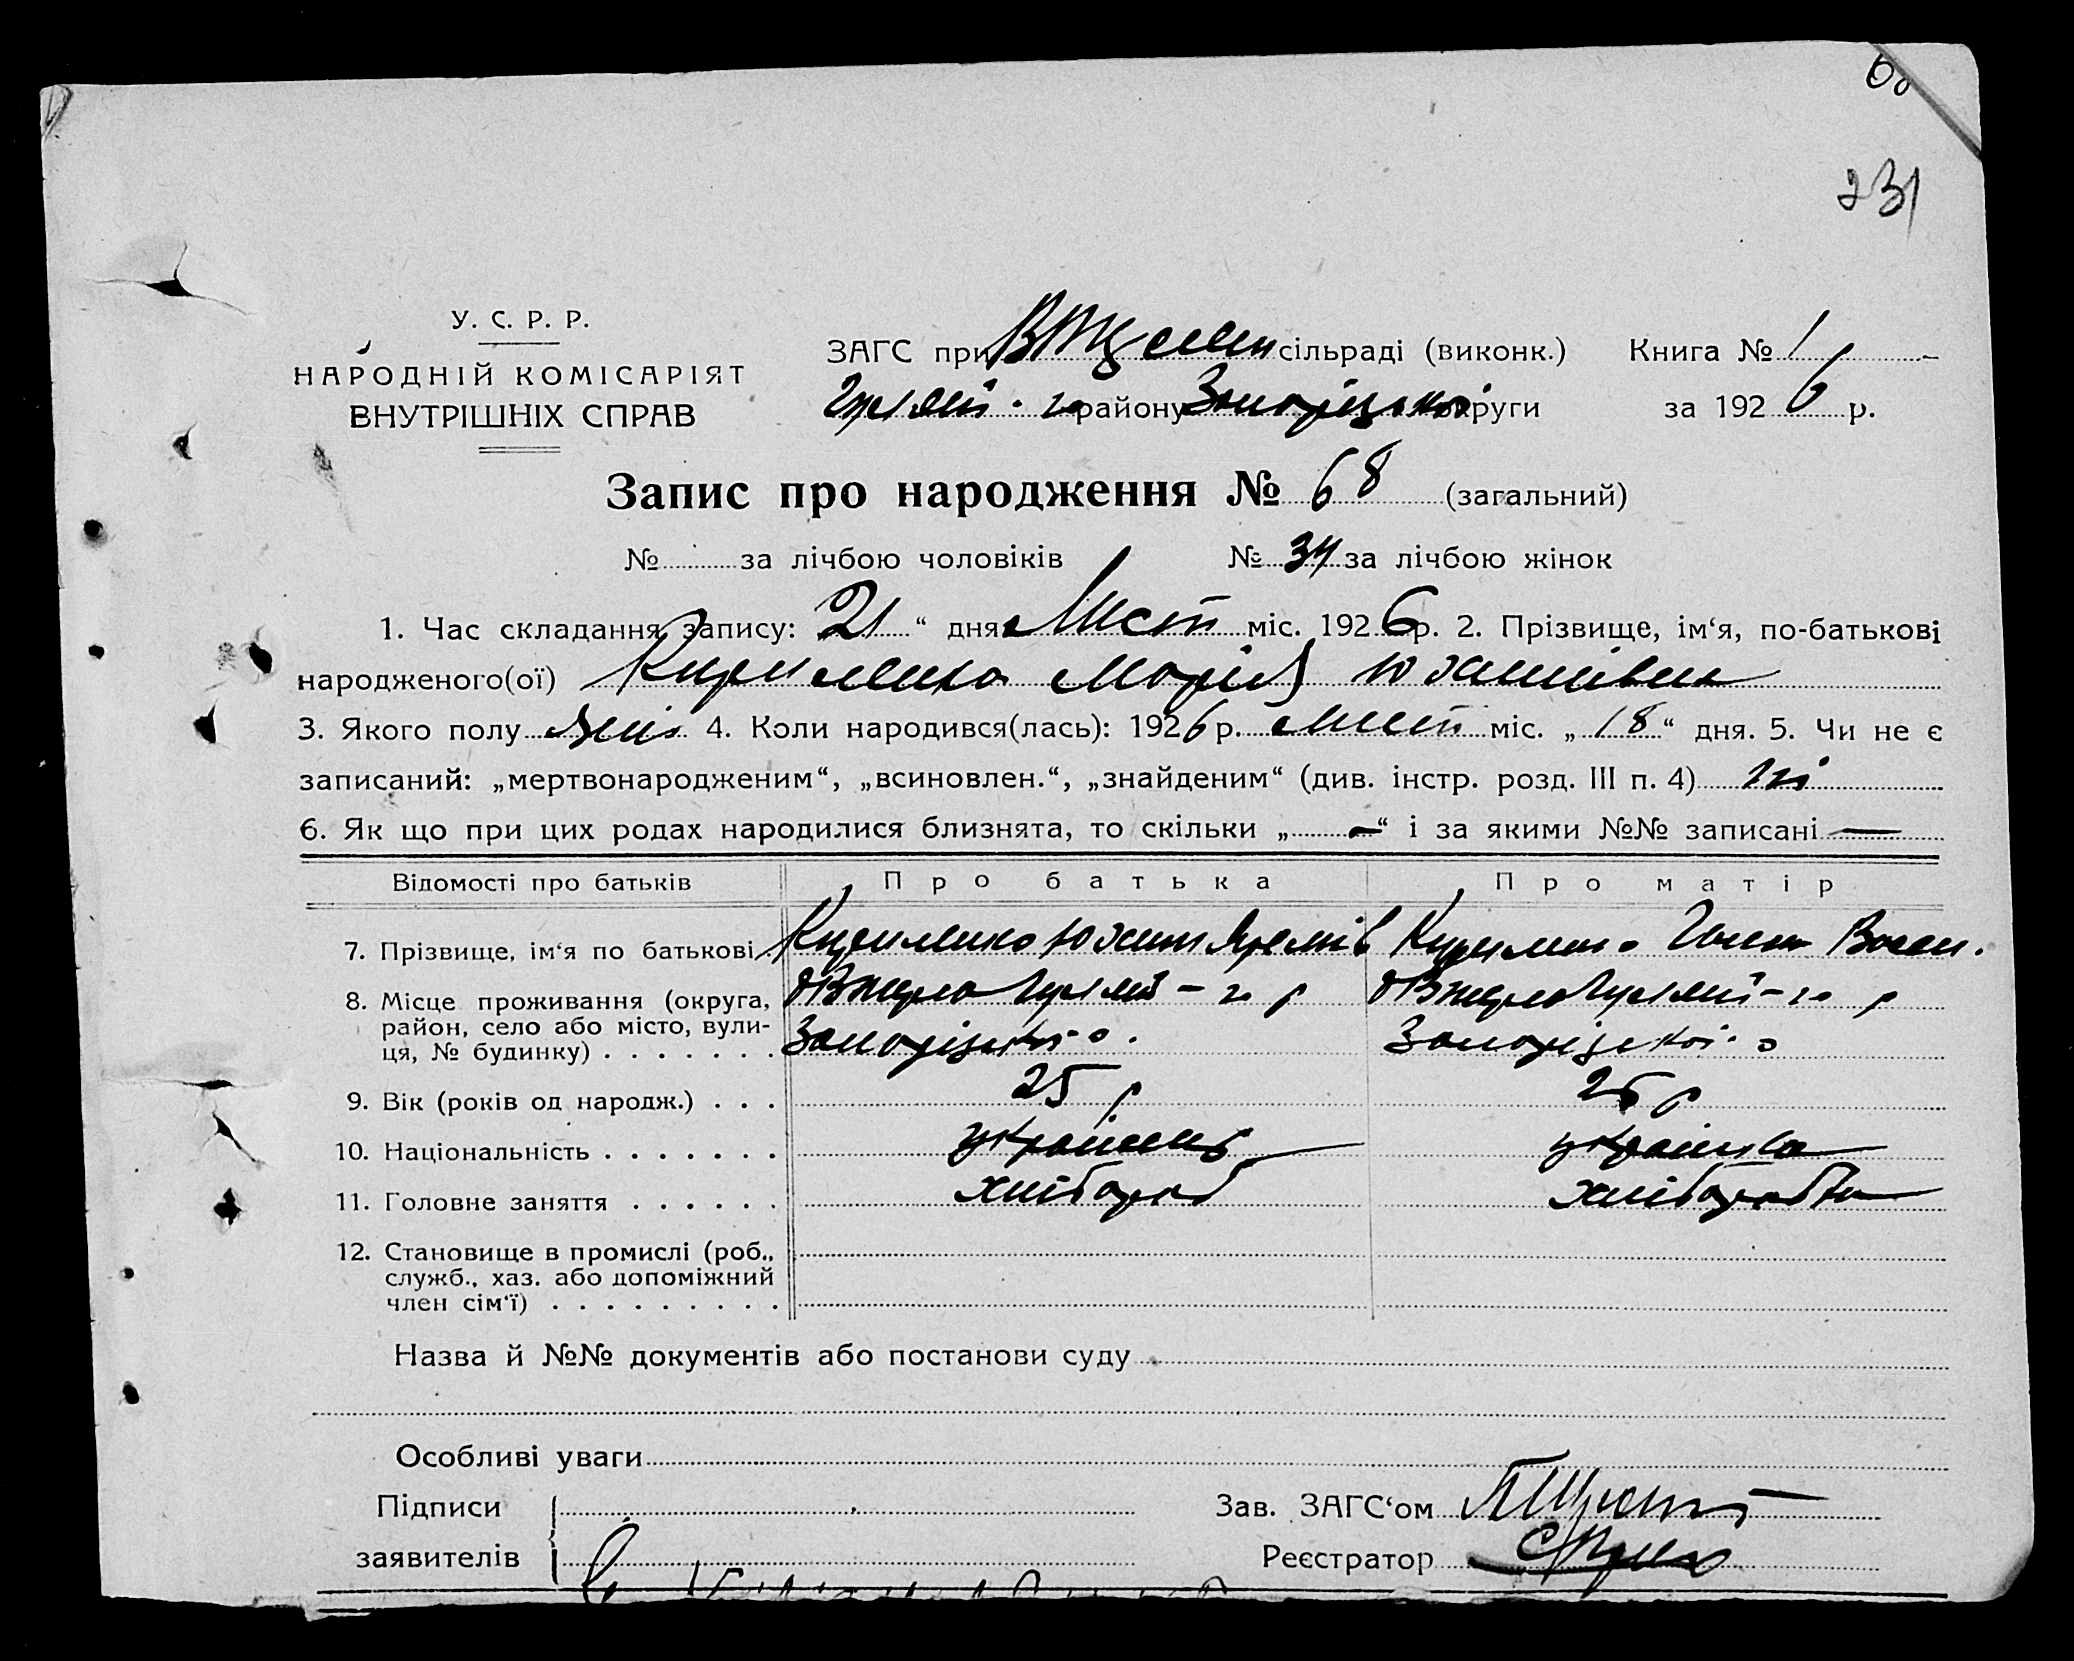 231
У. С. Р. Р.
НАРОДНІЙ КОМІСАРІЯТ
ВНУТРІШНІХ СПРАВ
ЗАГС при сільраді (виконк.) Книга № 1
району округи за 1926 р.
Запис про народження № 68 (загальний)
№ за лічбою чоловіків № 34 за лічбою жінок
1. Час складання запису: 21 “ дня Лист міс. 1926 р. 2. Прізвище, ім‘я, по-батькові
народженого(ої) Кириленко Марія Юхимівна
3. Якого полу жін 4. Коли народився(лась): 1926 р. лист міс. „ 18 “ дня. 5. Чи не є
записаний: „мертвонародженим“, „всиновлен.“, „знайденим“ (див. інстр. розд. III п. 4) ні
6. Як що при цих родах народилися близнята, то скільки „ — “ і за якими №№ записані —
Відомості про батьків Про батька Про матір
7. Прізвище, ім‘я по батькові Кириленко Юхим Кириленко
8. Місце проживання (округа,
район, село або місто, вули-
ця, № будинку) . . . . . . . Запоріцької о. Запоріцької о
9. Вік (років од народж.) . . . 25 р 25 р
10. Національність . . . . . . . українець українка
11. Головне заняття . . . . . . хлібороб хліборобка
12. Становище в промислі (роб.,
служб., хаз. або допоміжний
член сім‘ї) . . . . . . . . . .
Назва й №№ документів або постанови суду
Особливі уваги
Підписи Зав. ЗАГС‘ом
заявителів Реєстратор